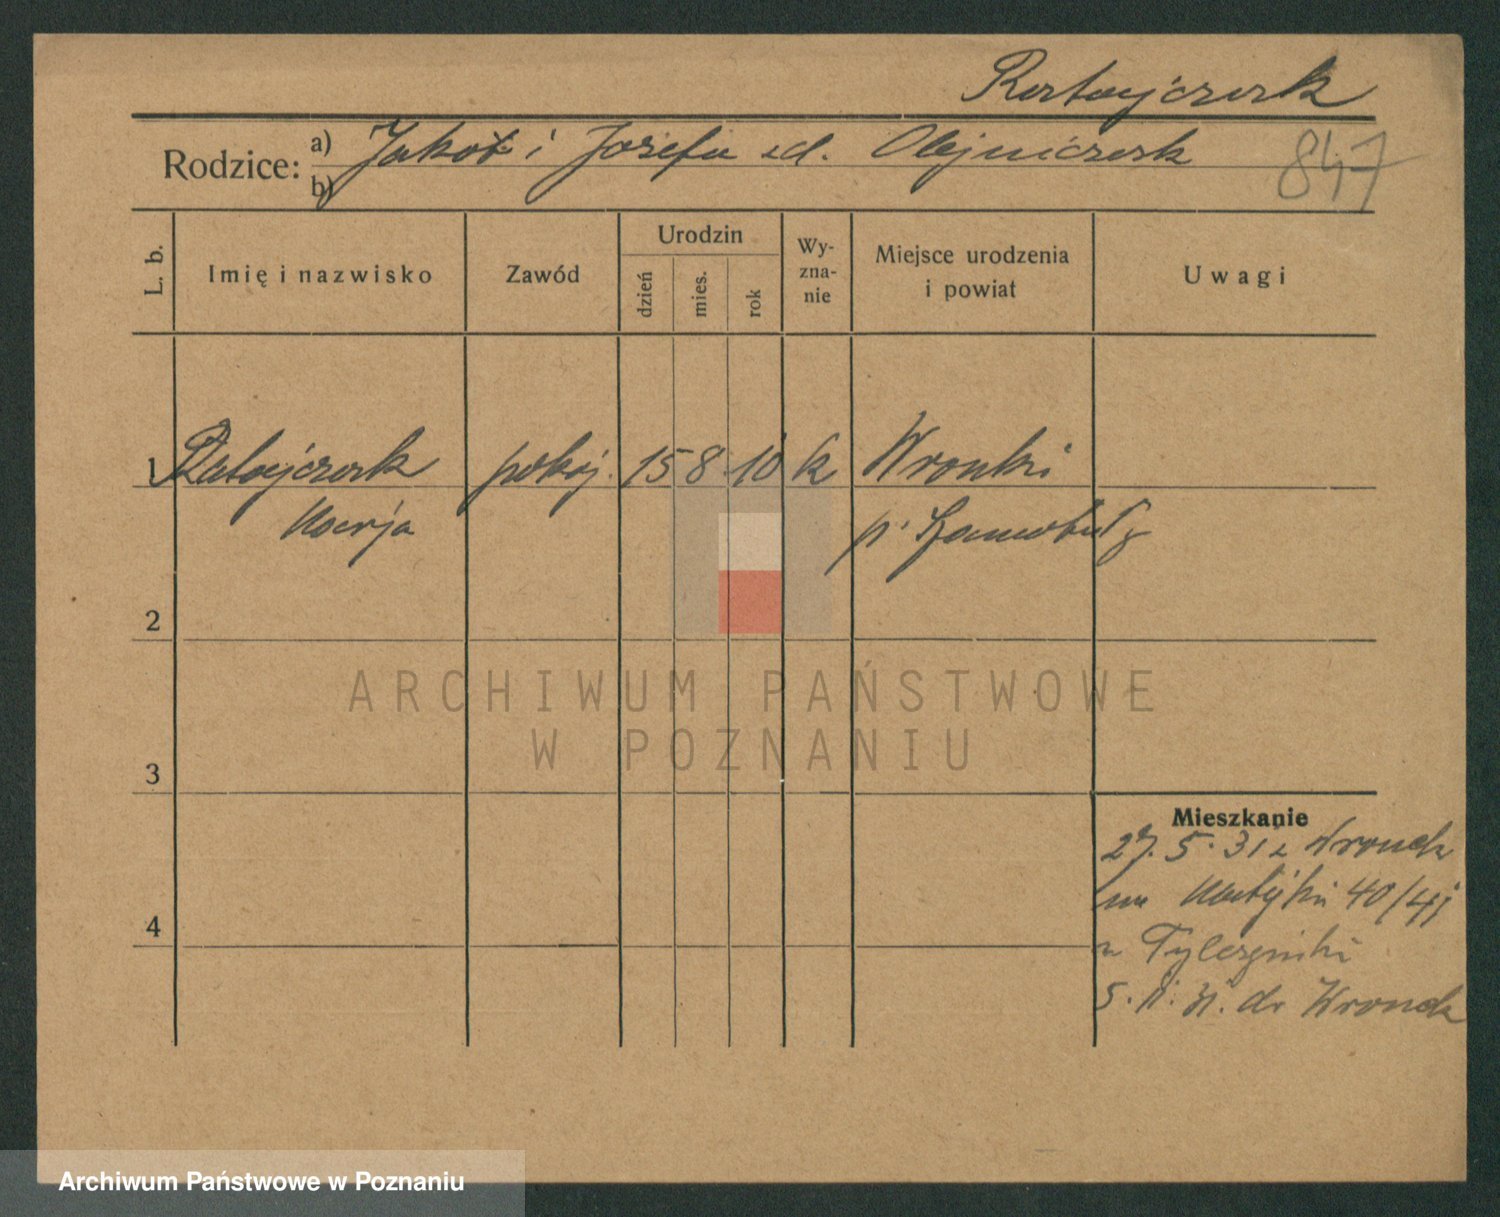 Ratajczak
Rodzice: a) Jakób i Józefa zd. Olejniczak
b)
847
L. b.
Imię i nazwisko
Zawód
Urodzin
dzień
mies.
rok
Wy-
zna-
nie
Miejsce urodzenia
i powiat
Uwagi
1 Ratajczak pokoj. 15 8. 10 k Wronki
Marja p. Szamotuły
2
ARCHIWUM PAŃSTWOWE
W POZNANIU
3
Mieszkanie
27. 5. 31 z Wronek
na Matejki 40/41
4
u
5. 11. 31. do Wronek
Archiwum Państwowe w Poznaniu